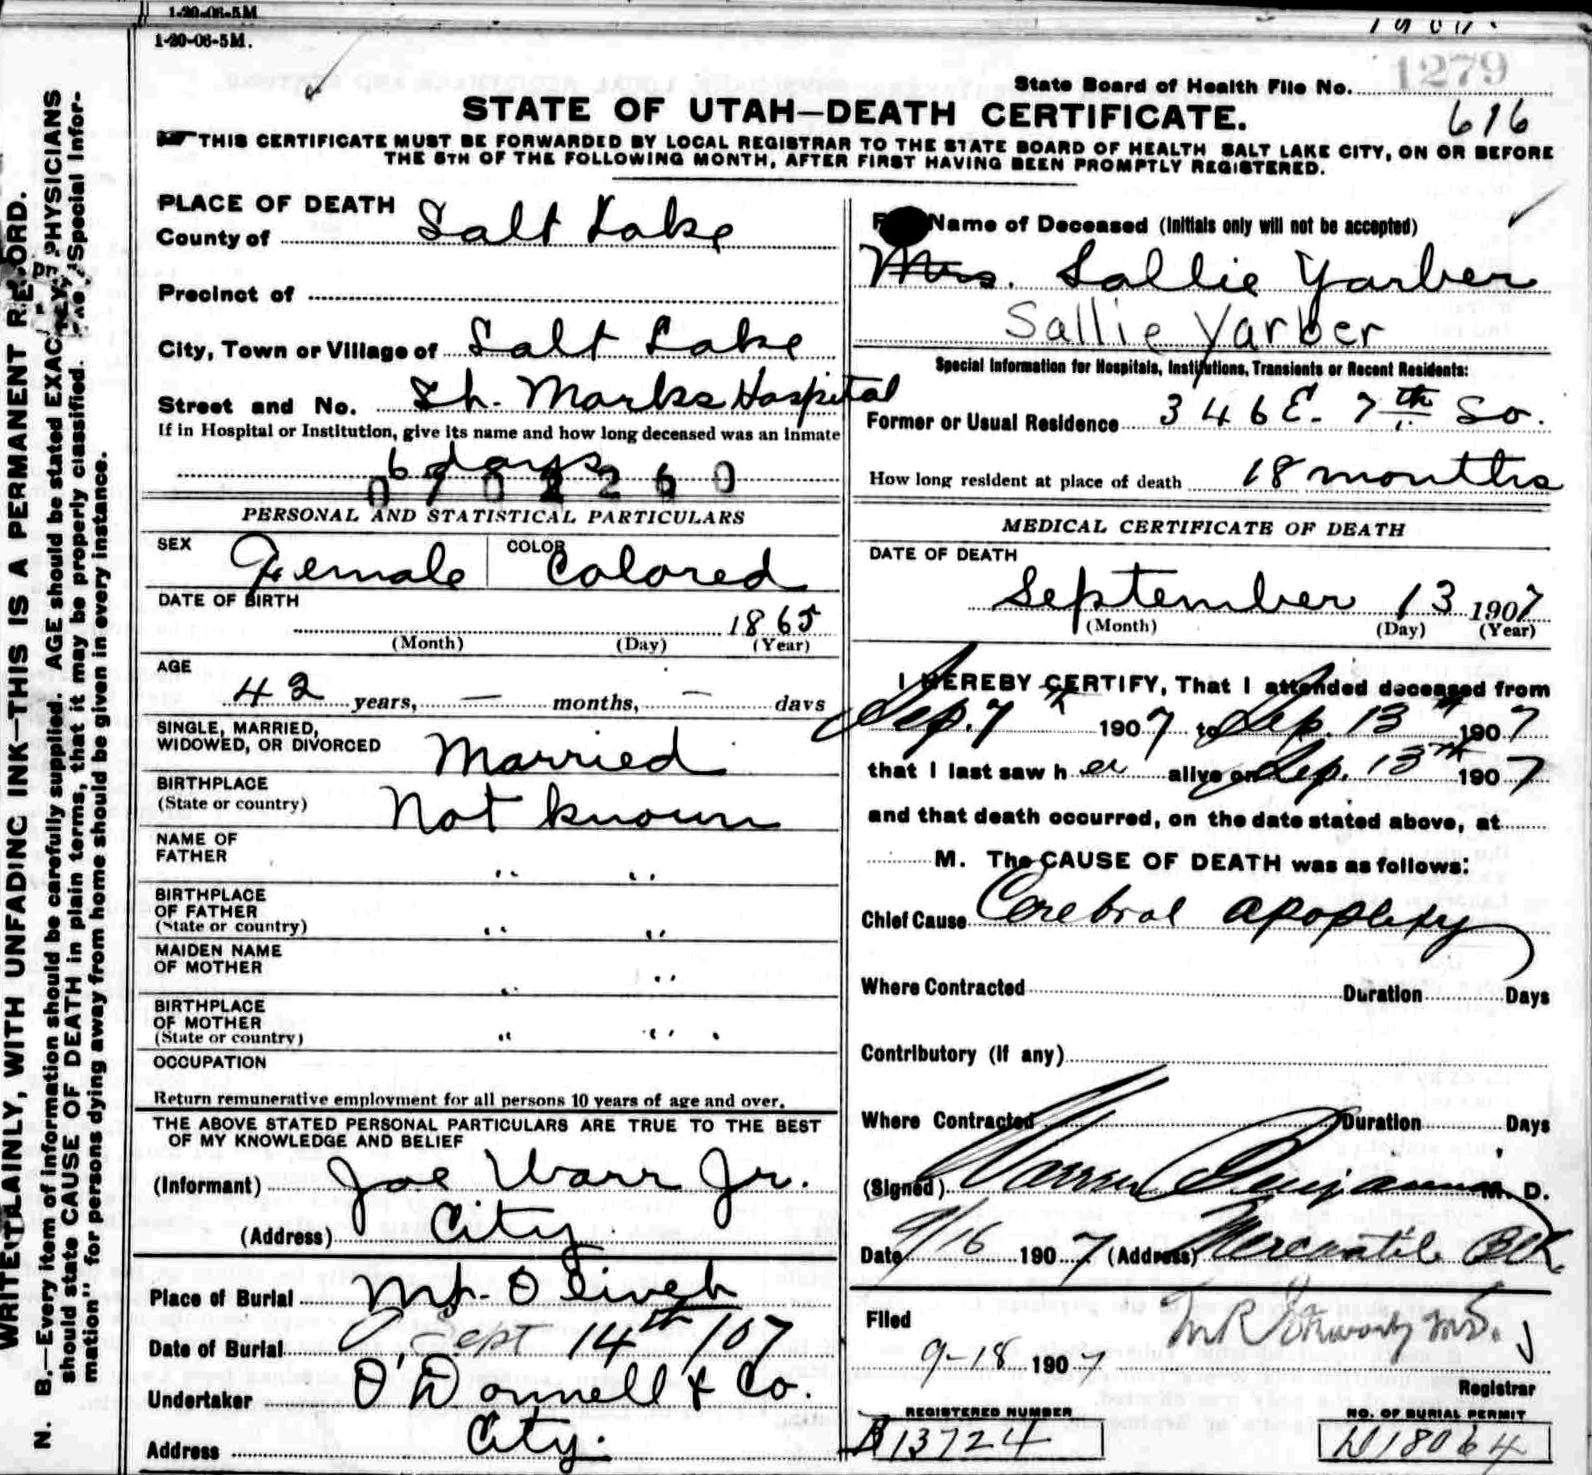 1-20-08-5M
1-20-08-5M.
State Board of Health File No. 1279
616
STATE OF UTAH—DEATH CERTIFICATE.
THIS CERTIFICATE MUST BE FORWARDED BY LOCAL REGISTRAR TO THE STATE BOARD OF HEALTH SALT LAKE CITY, ON OR BEFORE
THE 5TH OF THE FOLLOWING MONTH, AFTER FIRST HAVING BEEN PROMPTLY REGISTERED.
WRITE PLAINLY, WITH UNFADING INK—THIS IS A PERMANENT RECORD.
N. B.—Every item of information should be carefully supplied. AGE should be stated EXACTLY. PHYSICIANS
should state CAUSE OF DEATH in plain terms, that it may be properly classified. "Special Infor-
mation" for persons dying away from home should be given in every instance.
PLACE OF DEATH
County of Salt Lake
Precinct of
City, Town or Village of Salt Lake
Street and No. St. Marks Hospital
If in Hospital or Institution, give its name and how long deceased was an inmate
6 days
0701260
PERSONAL AND STATISTICAL PARTICULARS
SEX Female COLOR Colored
DATE OF BIRTH
1865
(Month) (Day) (Year)
AGE
42 years, — months, — days
SINGLE, MARRIED,
WIDOWED, OR DIVORCED Married
BIRTHPLACE
(State or country) Not known
NAME OF
FATHER " "
BIRTHPLACE
OF FATHER
(State or country) " "
MAIDEN NAME
OF MOTHER " "
BIRTHPLACE
OF MOTHER
(State or country) " "
OCCUPATION
Return remunerative employment for all persons 10 years of age and over.
THE ABOVE STATED PERSONAL PARTICULARS ARE TRUE TO THE BEST
OF MY KNOWLEDGE AND BELIEF
(Informant) Joe Warr Jr.
(Address) City
Place of Burial Mt. Olivet
Date of Burial Sept 14th /07
Undertaker O'Donnell & Co.
Address City.
Name of Deceased (Initials only will not be accepted)
Mrs. Sallie Yarber
Sallie Yarber
Special Information for Hospitals, Institutions, Transients or Recent Residents:
Former or Usual Residence 346 E. 7th So.
How long resident at place of death 18 months
MEDICAL CERTIFICATE OF DEATH
DATE OF DEATH
September 13 1907
(Month) (Day) (Year)
I HEREBY CERTIFY, That I attended deceased from
Sep. 7th 1907 to Sep. 13th 1907
that I last saw her alive on Sep. 13th 1907
and that death occurred, on the date stated above, at
M. The CAUSE OF DEATH was as follows:
Chief Cause Cerebral apoplexy
Where Contracted Duration Days
Contributory (If any)
Where Contracted Duration Days
(Signed) Warren Benjamin M. D.
Date 9/16 1907 (Address) Mercantile Blk
Filed
9-18 1907
Registrar
REGISTERED NUMBER
B13724
NO. OF BURIAL PERMIT
N18064